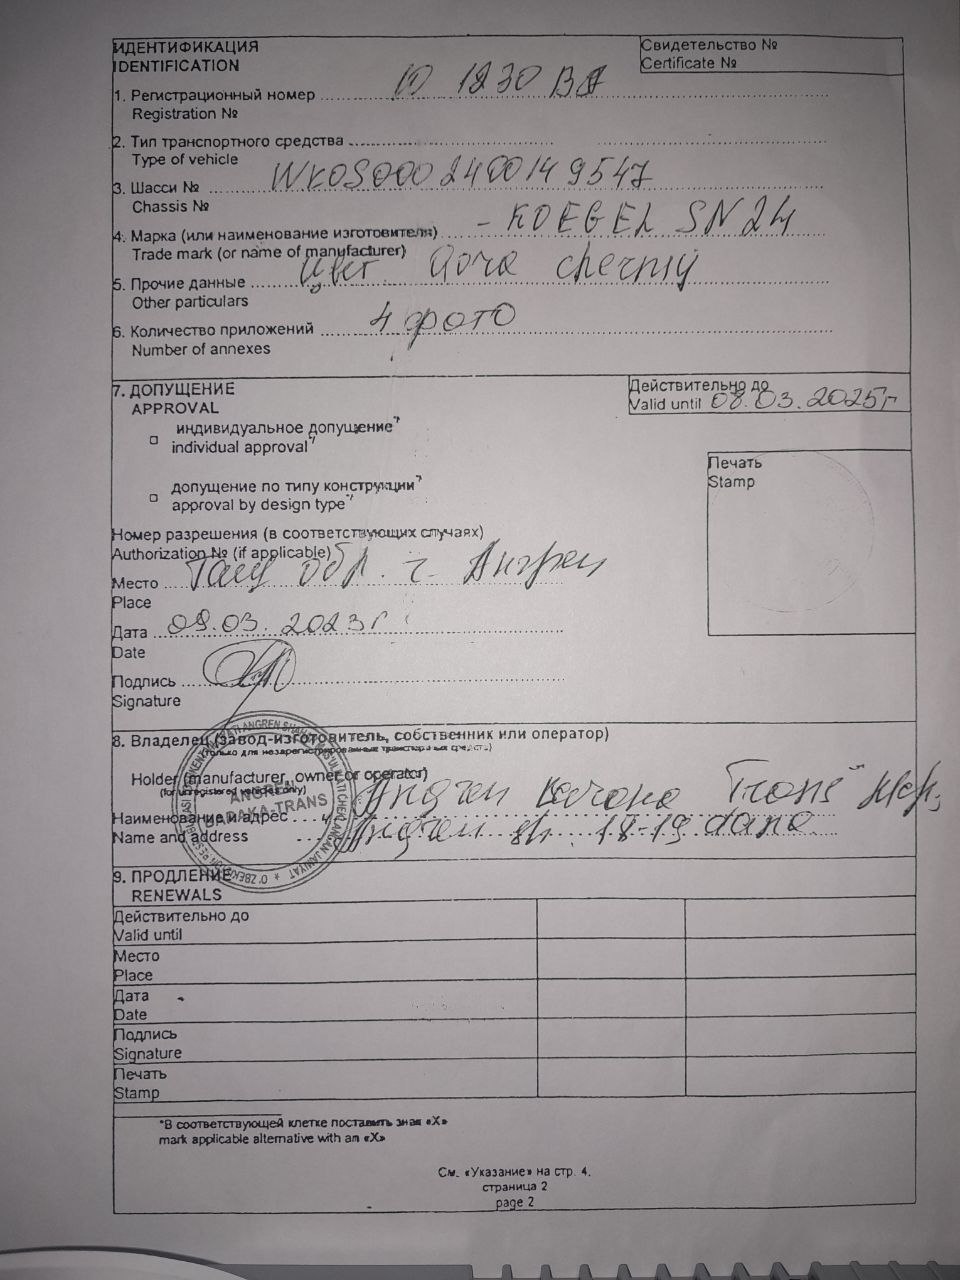 ИДЕНТИФИКАЦИЯ
IDENTIFICATION
Свидетельство №
Certificate №
1. Регистрационный номер 10 1230 BA
Registration №
2. Тип транспортного средства
Type of vehicle
3. Шасси № WK0S0002400149547
Chassis №
4. Марка (или наименование изготовителя) - KOEGEL SN24
Trade mark (or name of manufacturer)
5. Прочие данные Цвет Qora cherniy
Other particulars
6. Количество приложений 4 фото
Number of annexes
7. ДОПУЩЕНИЕ
APPROVAL
Действительно до
Valid until 08.03.2025г
индивидуальное допущение*⁾
individual approval*⁾
допущение по типу конструкции*⁾
approval by design type*⁾
Печать
Stamp
Номер разрешения (в соответствующих случаях)
Authorization № (if applicable)
Место Таш обл. г. Ангрен
Place
Дата 09.03.2023г
Date
Подпись
Signature
8. Владелец (завод-изготовитель, собственник или оператор)
(только для незарегистрированных транспортных средств)
Holder (manufacturer, owner or operator)
(for unregistered vehicles only)
ANGREN
BARAKA-TRANS
Наименование и адрес Angren Trans
Name and address Angren sh. 18-19 dana
9. ПРОДЛЕНИЕ
RENEWALS
Действительно до
Valid until
Место
Place
Дата
Date
Подпись
Signature
Печать
Stamp
*В соответствующей клетке поставить знак «X»
mark applicable alternative with an «X»
См. «Указание» на стр. 4.
страница 2
page 2